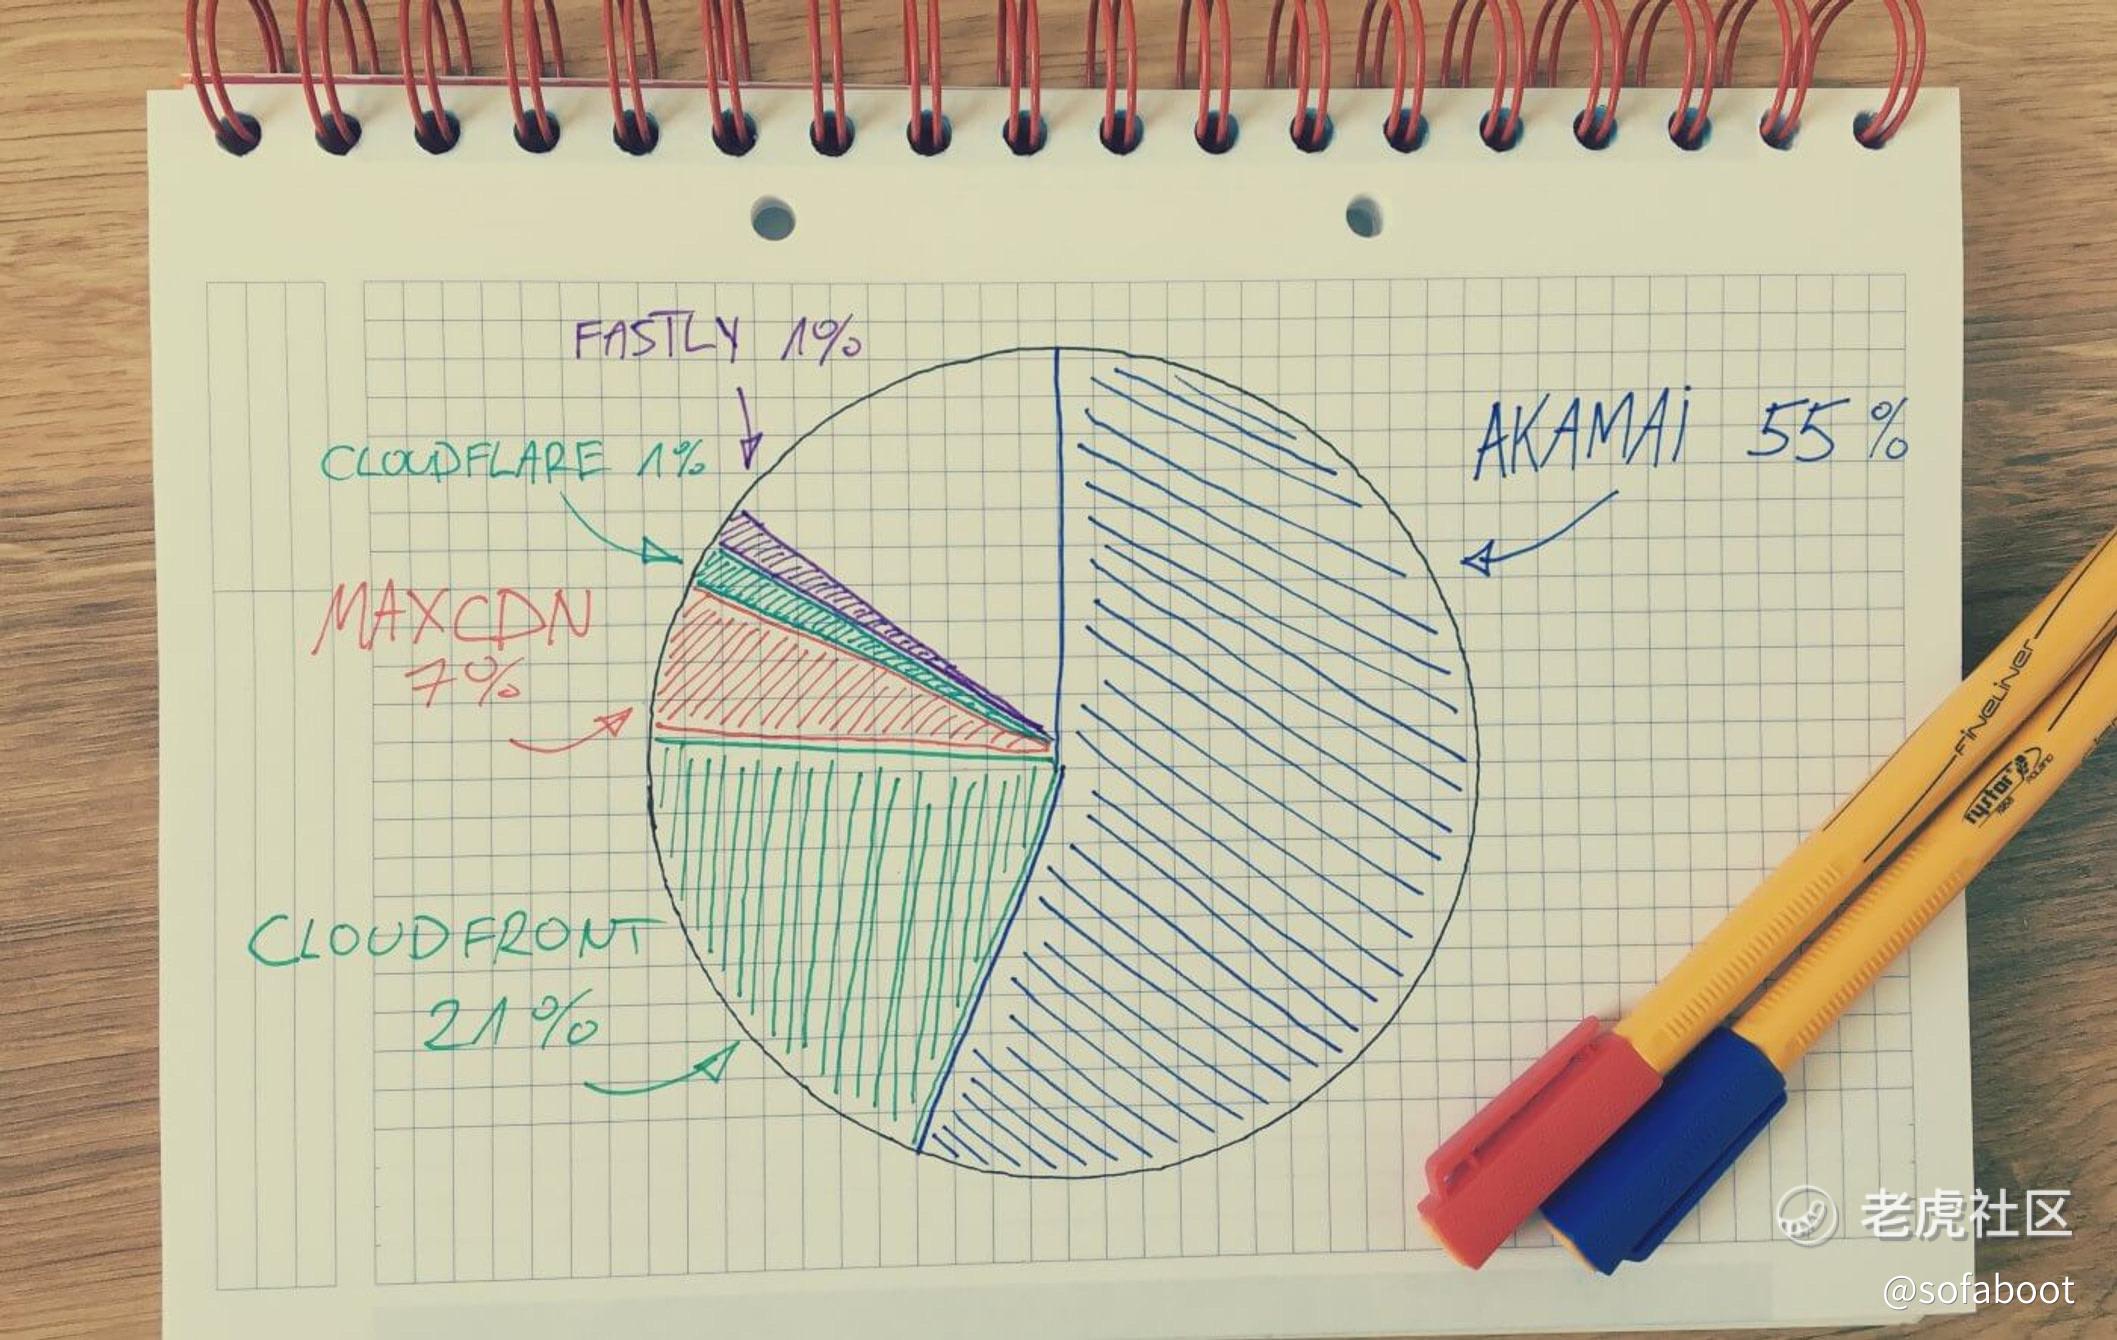 FASTLY 1%
CLOUDFLARE 1%
AKAMAi 55%
MAXCDN
7%
CLOUDFRONT
21%
FiNELiNER
rystor
1958
POLAND
老虎社区
@sofaboot